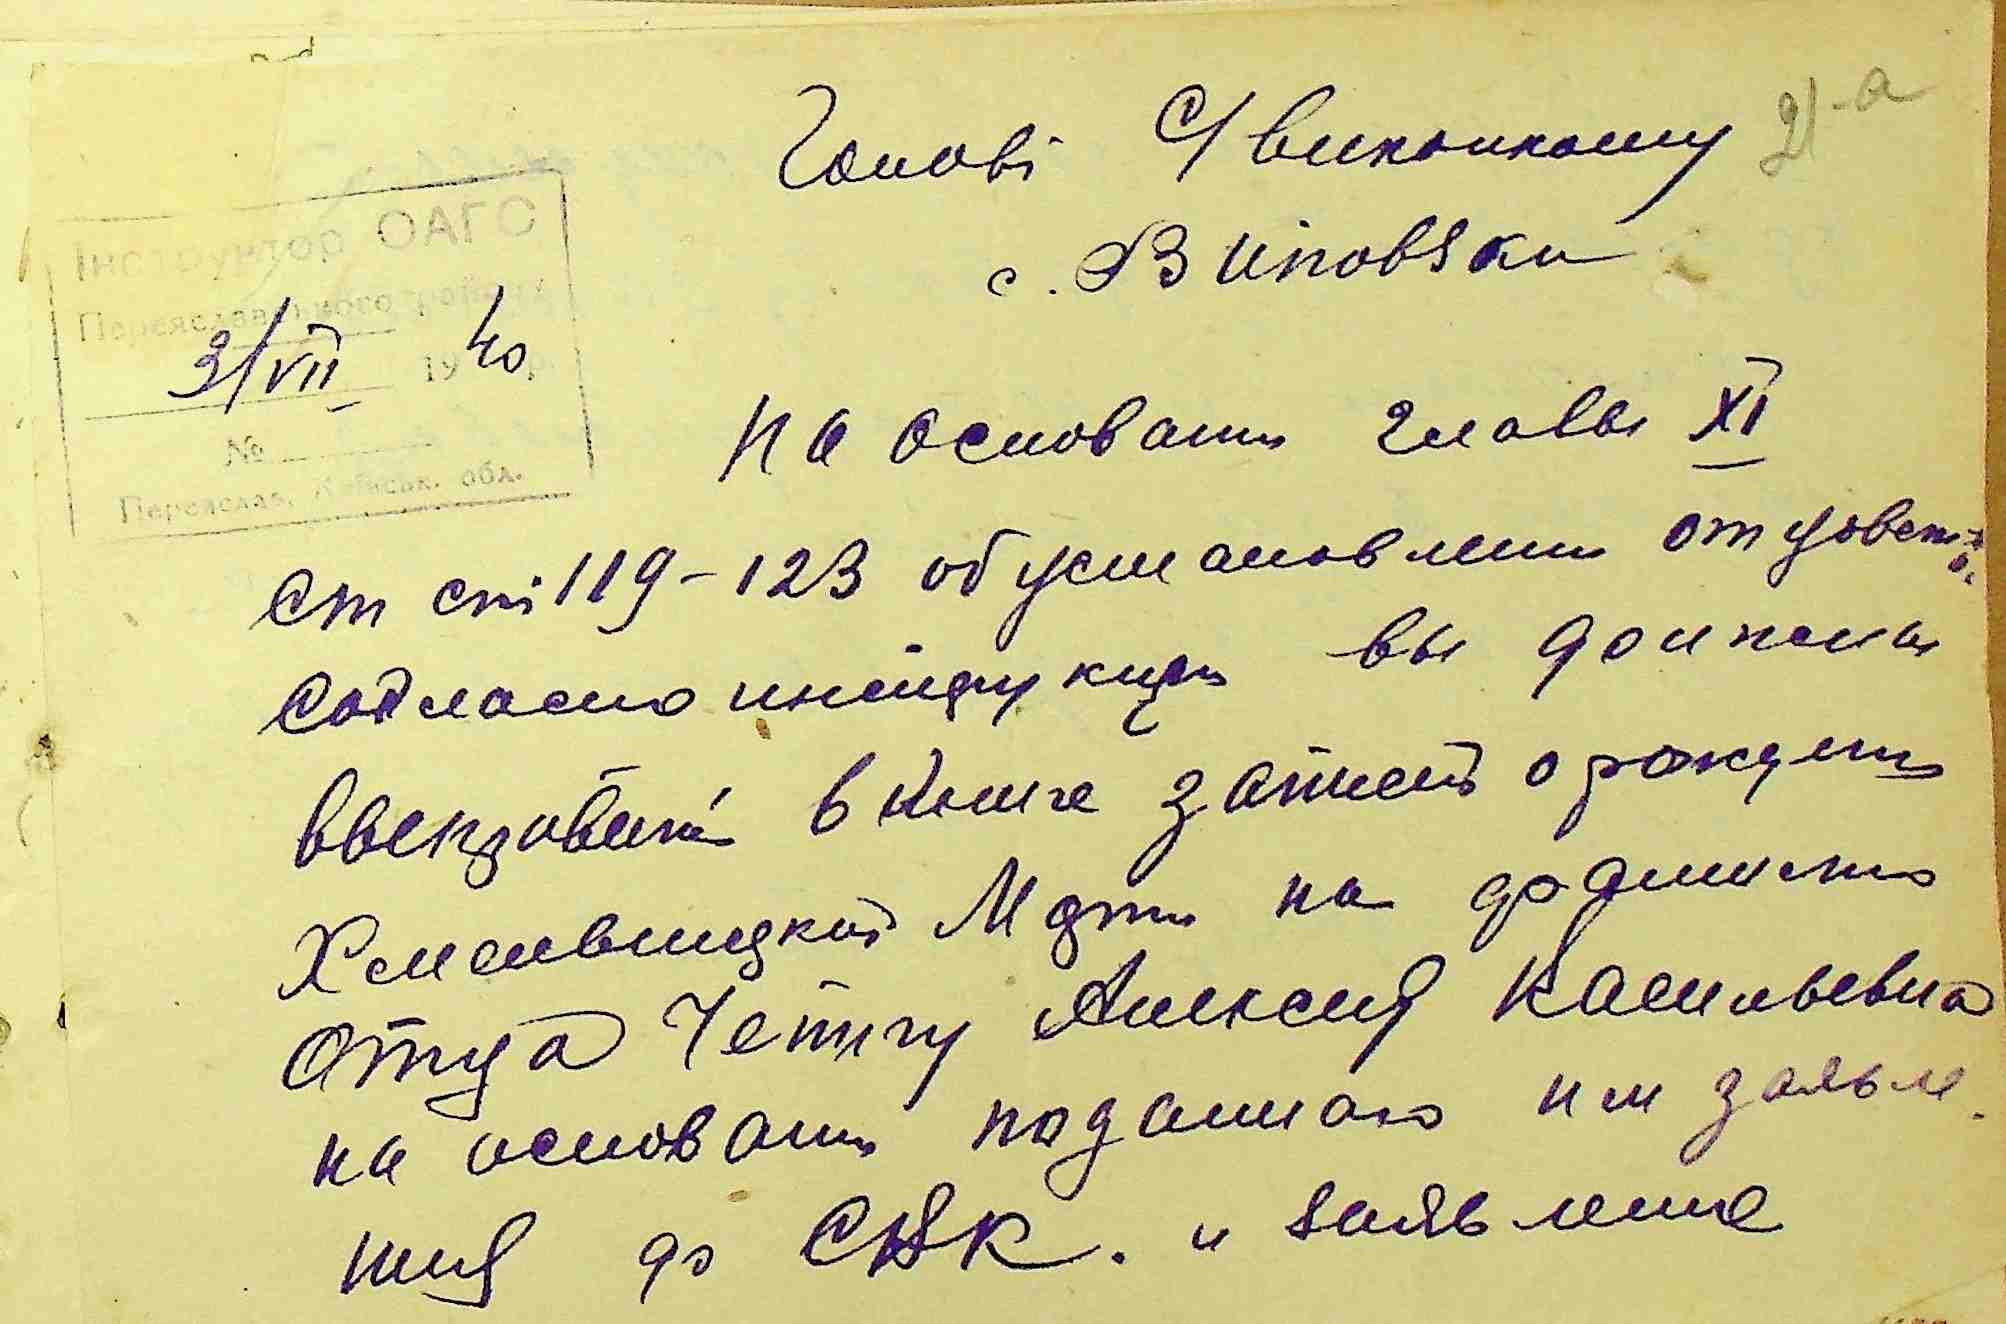 21-а
Голові С/виконкому
с. Виповзки
Інструктор ОАГС
Переяславського району
31/VII 1940 р.
№
Переяслав, Київськ. обл.
На основании главы XI
ст ст 119-123 об установлении отцовства
согласно инструкции вы должны
в книге записей о рождении
Хмельвицкой на
отца Чепигу Алексея Васильевича
на основании поданного им заявле
ния до СНК. и заявление